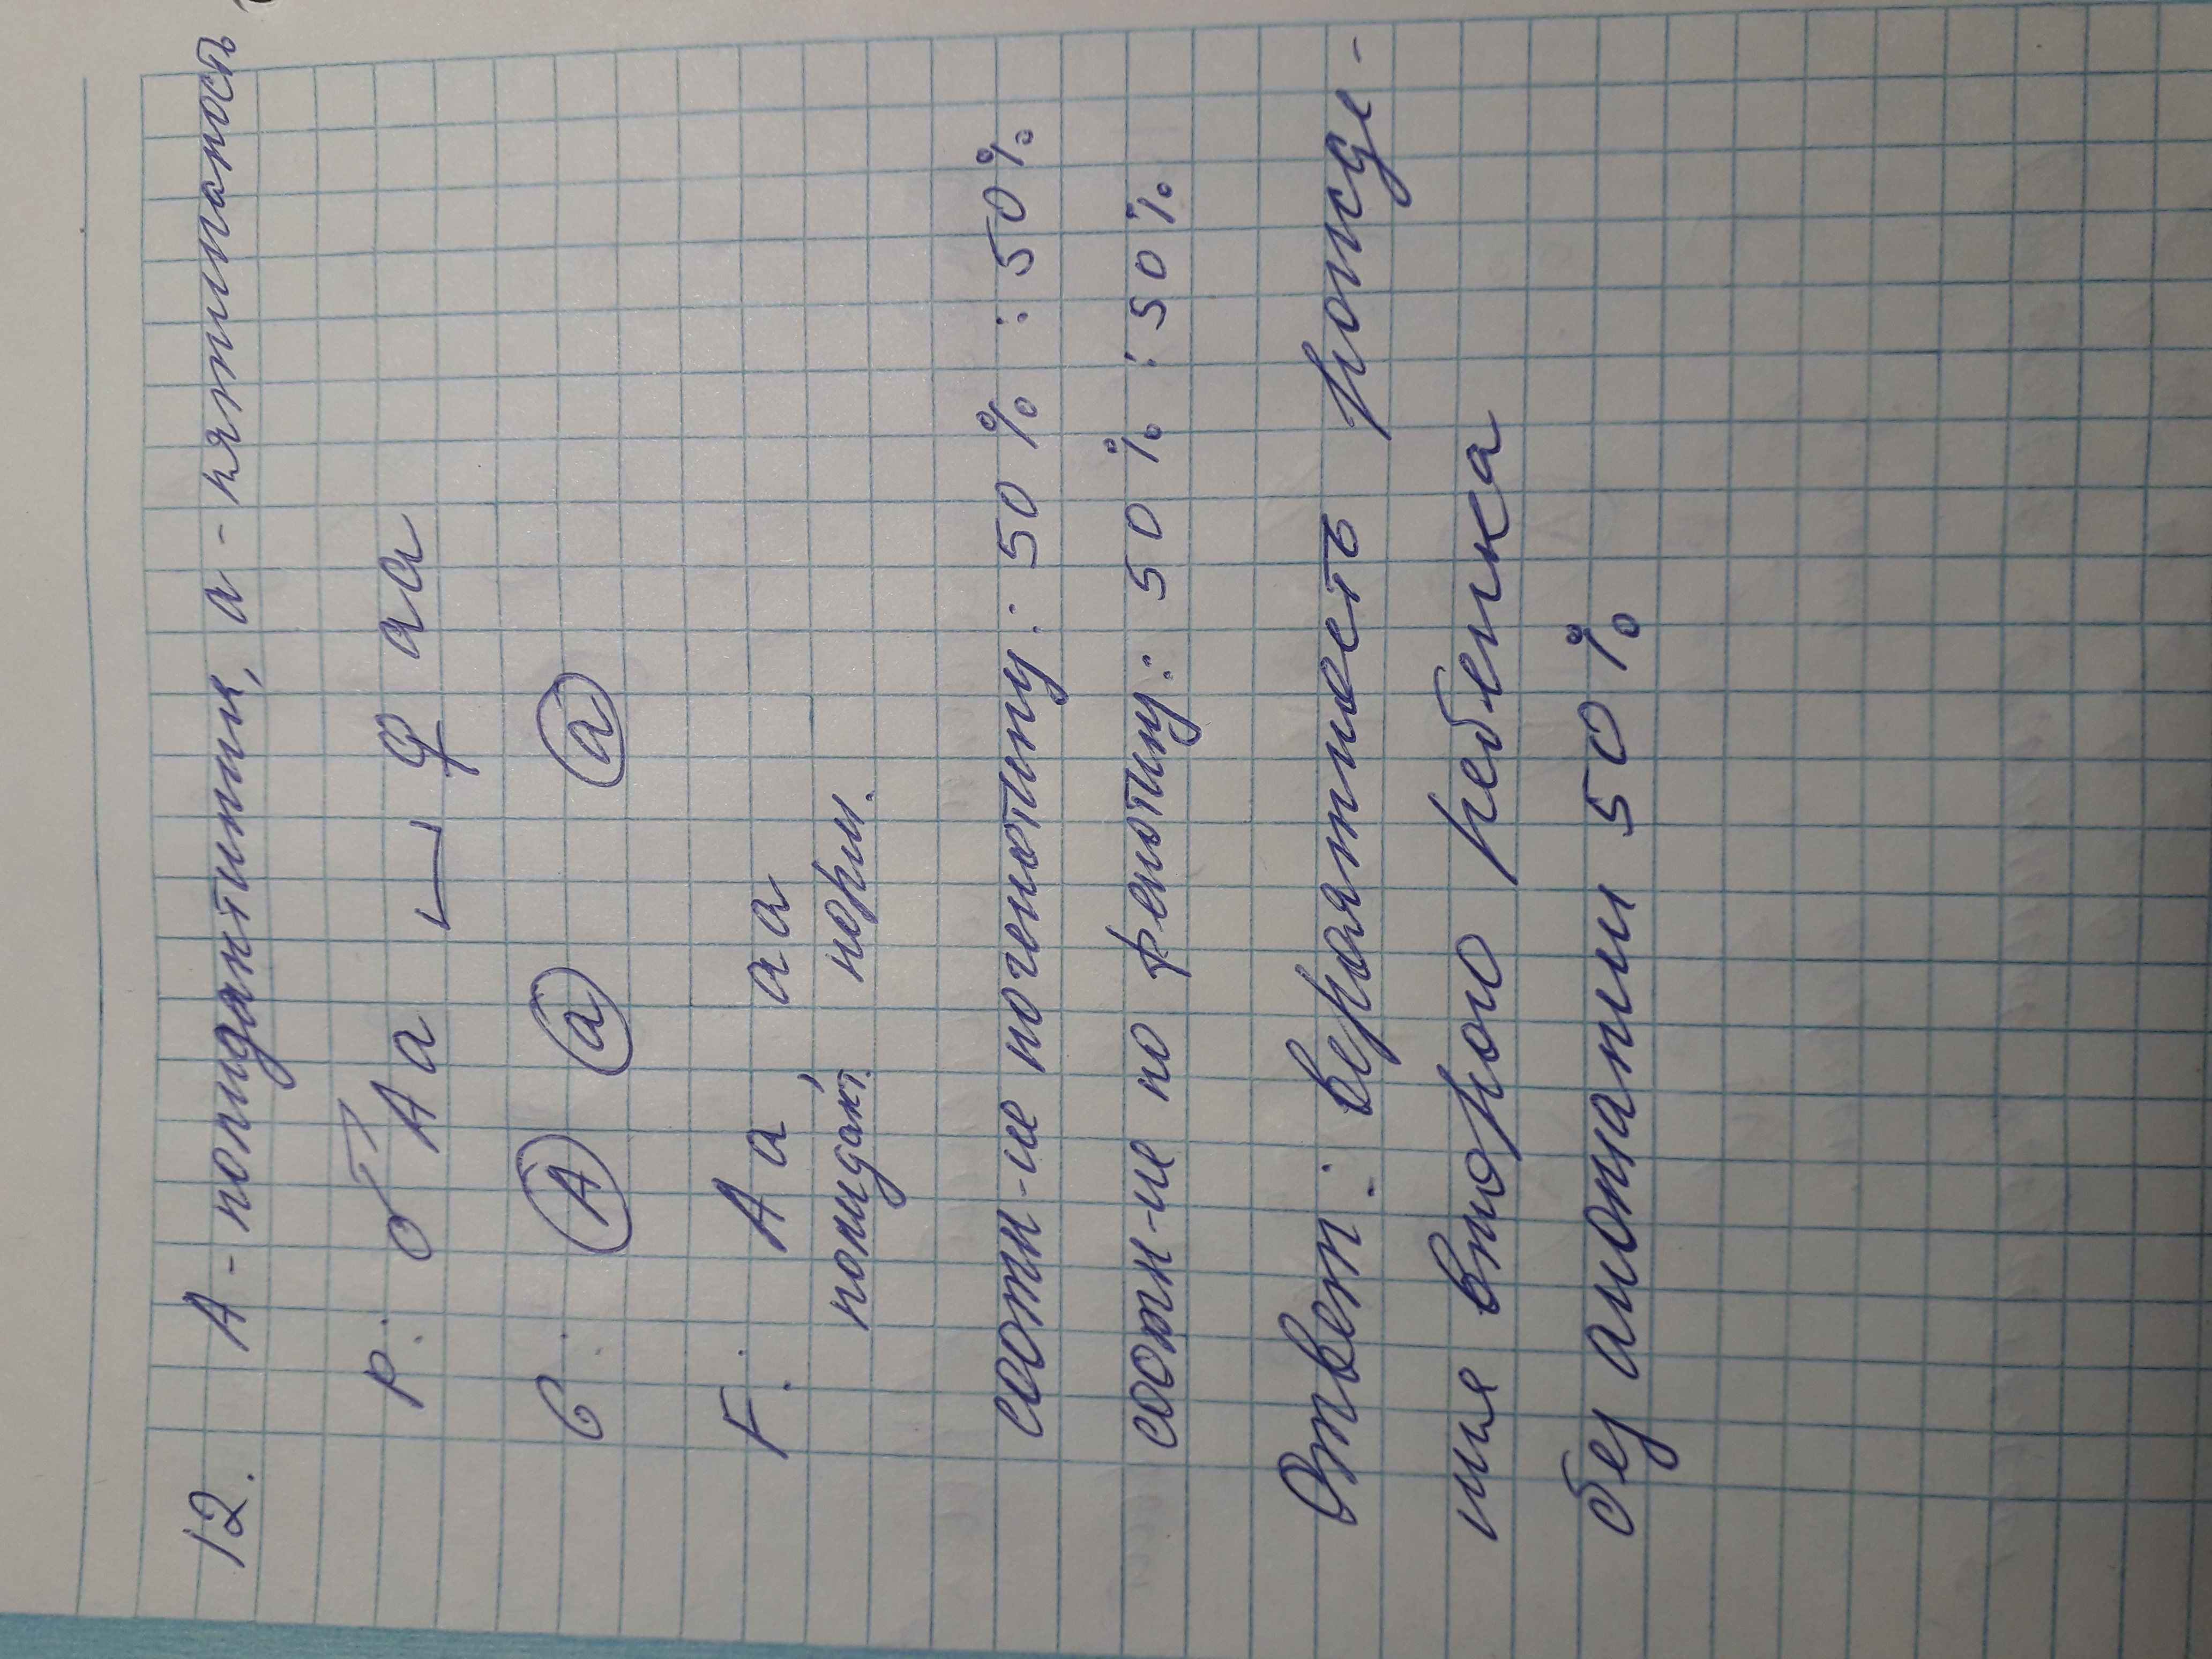 12. А - полидактилия, а - пятипалость
Р: ♂ Аа × ♀ аа
G: А а а
F: Аа аа
полидакт. норм.
соотн-ие по генотипу: 50 % : 50 %
соотн-ие по фенотипу: 50 % : 50 %
Ответ: вероятность рожде-
ния второго ребенка
без аномалии 50 %